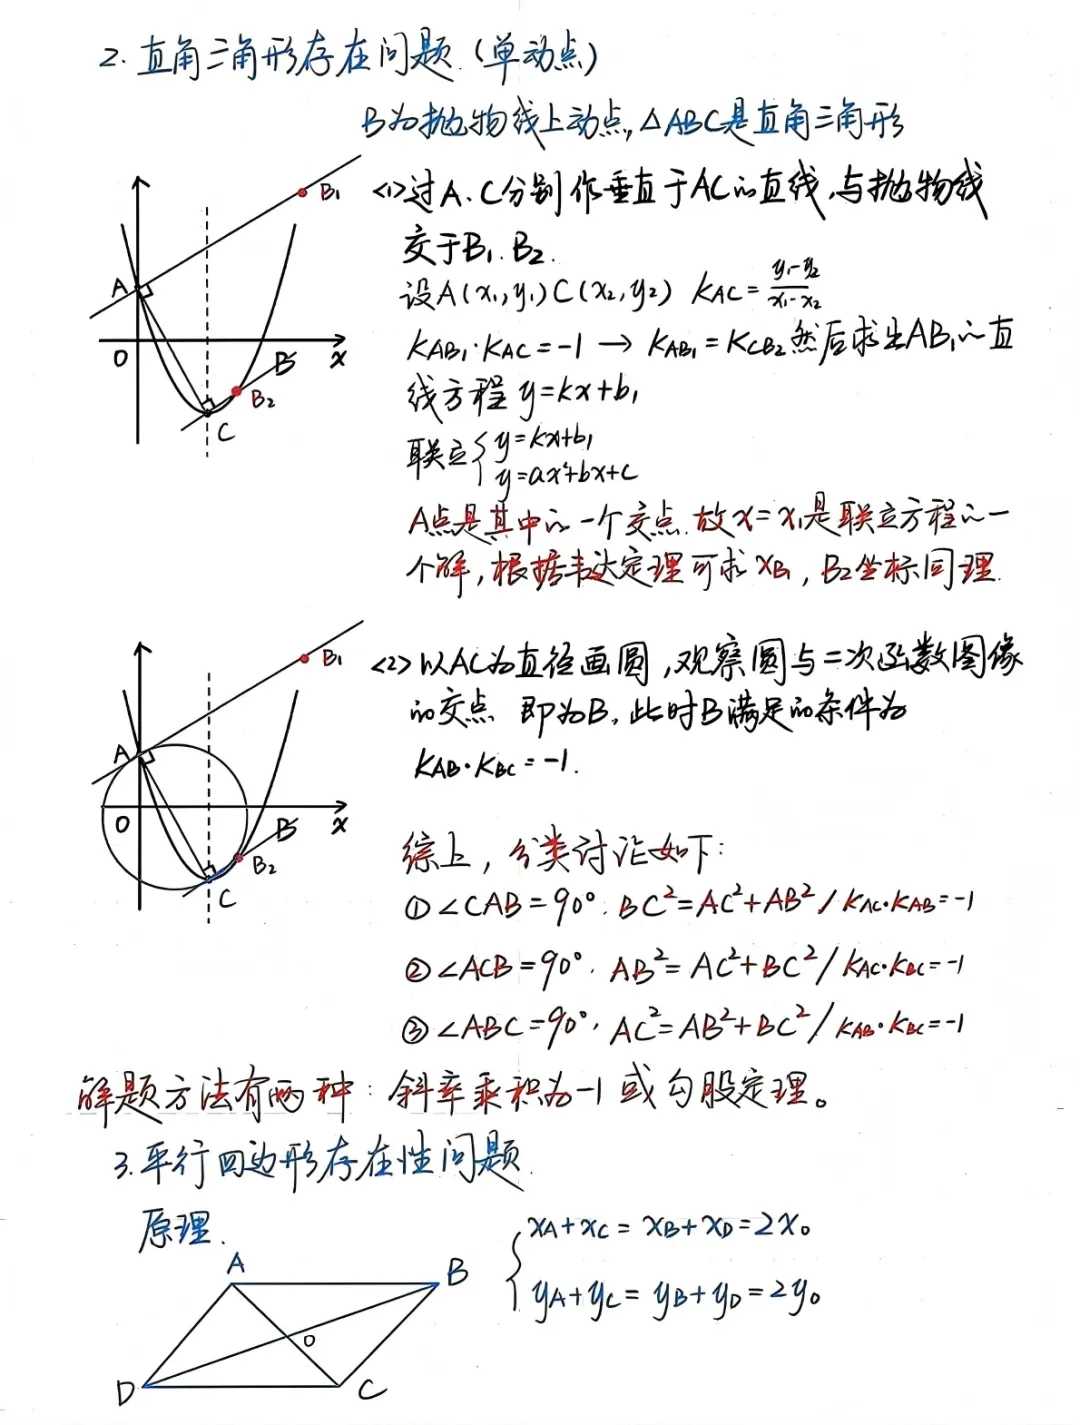 2. 直角三角形存在问题.(单动点)
B为抛物线上动点, △ABC是直角三角形
<1>过A.C分别作垂直于AC的直线,与抛物线
交于B₁.B₂.
设A(x₁,y₁)C(x₂,y₂) K_AC=(y₁-y₂)/(x₁-x₂)
K_AB₁·K_AC=-1→K_AB₁=K_CB₂然后求出AB₁的直
线方程 y=kx+b₁
联立{y=kx+b₁
y=ax²+bx+c
A点是其中的一个交点.故x=x₁是联立方程的一
个解,根据韦达定理可求x_B₁,B₂坐标同理.
B₁
A
O
B
x
B₂
C
<2>以AC为直径画圆,观察圆与二次函数图像
的交点 即为B,此时B满足的条件为
K_AB·K_BC=-1.
B₁
A
O
B
x
B₂
C
综上,分类讨论如下:
①∠CAB=90°. BC²=AC²+AB²/K_AC·K_AB=-1
②∠ACB=90°. AB²=AC²+BC²/K_AC·K_BC=-1
③∠ABC=90°. AC²=AB²+BC²/K_AB·K_BC=-1
解题方法有两种:斜率乘积为-1或勾股定理。
3.平行四边形存在性问题.
原理.
{x_A+x_C=x_B+x_D=2x₀
y_A+y_C=y_B+y_D=2y₀
A
B
O
D
C